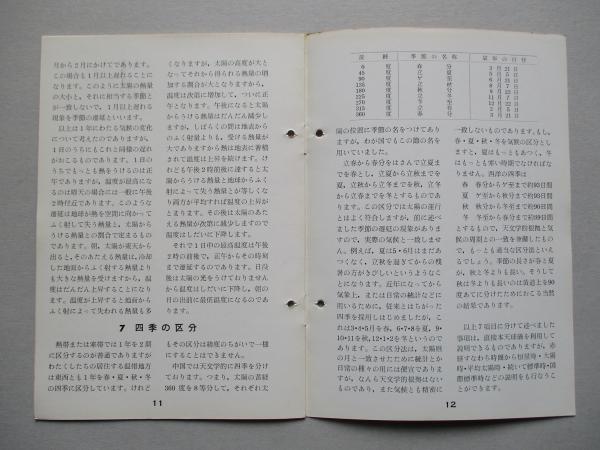 月から2月にかけてであります。
この場合も1月以上遅れることに
なります。このように太陽の熱量
の大小と、それに相当する季節と
が一致しないで、1月以上遅れる
現象を季節の遅延といいます。
以上は1年にわたる気候の変化
について考えたのでありますが、
1日のうちにもこれと同様の遅れ
がおこるものであります。1日の
うちでもっとも熱をうけるのは正
午でありますが、温度が最高にな
るのは晴天の場合には一般に午後
2時付近であります。このような
遅延は地球が熱を空間に向かって
ふく射して失う熱量と、太陽から
うける熱量との割合で定まるもの
であります。朝、太陽が東天から
出ると、そのあたえる熱量は、冷却
した地面からふく射する熱量より
も大きな熱量を受けますから、温
度はだんだん上昇することになり
ます。温度が上昇すると地面から
ふく射によって失われる熱量も多
くなりますが、太陽の高度が大と
なってそれから得られる熱量の増
加する割合が大となりますから、
温度は次第に増加して、ついに正
午となります。午後になると太陽
からうける熱量はだんだん減少し
ますが、しばらくの間は地表から
のふく射量よりも、受ける熱量が
大でありますから熱は地表に蓄積
されて温度は上昇を続けます。け
れども午後2時前後に達すると太
陽からうける熱量と地球からふく
射によって失う熱量とが等しくな
り両方が平均すれば温度の上昇が
とまります。その後は太陽のあた
える熱量が次第に減少しますので
温度はしだいに下降します。
それで1日中の最高温度は午後
2時の前後で、正午からその時刻
まで遅延するのであります。日没
後は太陽の光をうけておりません
から温度はしだいに下降し、朝の
日の出前に最低温度になるのであ
ります。
7 四季の区分
熱帯または寒帯では1年を2期
に区分するのが普通でありますが
わたくしたちの居住する温帯地方
は東西とも1年を春・夏・秋・冬
の四季に区分しています。けれど
もその区分は緯度のちがいで一様
にすることはできません。
中国では天文学的に四季を分け
ております。つまり、太陽の黄経
360度を8等分して、それぞれ太
11
黄 経 季節の名称 最春の日付
0 度 春 分 3月21日
45 度 立 夏 5月5日
90 度 ゲ 至 6月21日
135 度 立 秋 8月7日
180 度 秋 分 9月23日
225 度 立 冬 11月7日
270 度 冬 至 12月22日
315 度 立 春 2月5日
360 度 春 分 3月21日
陽の位置に季節の名をつけてあり
ますが、わが国でもこの節の名を
用いていました。
立春から春分をはさんで立夏ま
でを春とし、立夏から立秋までを
夏、立秋から立冬までを秋、立冬
から立春までを冬とするものであ
ります。この区分では太陽の運行
とはよく符合しますが、前に述べ
ました季節の遅延の現象がありま
すので、実際の気候と一致しませ
ん。例えば、夏は5・6月はまだあ
つくなく、立秋を過ぎてからの残
暑の方がきびしいというようなこ
とになります。近年になってから
気象上、または日常の統計などに
用いるために、従来とはちがった
四季を採用しはじめましたが、こ
れは3・4・5月を春、6・7・8を夏、9・
10・11を秋、12・1・2を冬というので
あります。この区分法は、太陽暦
の月と一致させたために統計とか
日常の種々の用には便宜でありま
すが、なんら天文学的根拠はない
ものであり、また気候とも精密に
一致しないものであります。もし、
春・夏・秋・冬を気候の区分とし
ますと、夏はもっともあつく、冬
はもっとも寒い時期でなければな
りません。西洋の四季は
春 春分からゲ至まで約93日間
夏 ゲ至から秋分まで約93日間
秋 秋分から冬至まで約90日間
冬 冬至から春分まで約89日間
とするもので、天文学的根拠と気
候の周期との一致を兼備したもの
で、もっとも適当な区分法といえ
るでしょう。季節の長さが春と夏
が、秋と冬よりも長い、そうして
秋は冬よりも長いのは黄道上を90
度あてに分けたためにおこる当然
の結果であります。
以上7項目に分けて述べました
事項は、直接本天球儀を利用して
説明できるものでありますが、赤
緯すなわち時圏から恒星時・太陽
時・平均太陽時・続いて標準時・国
際標準時などの説明をも行なうこ
とができます。
12